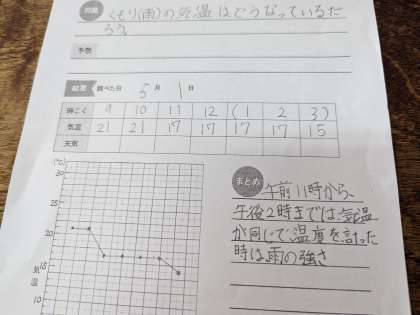 問題 くもり(雨)の気温はどうなっているだ
ろう。
予想
結果 調べた日 5月1日
時こく 9 10 11 12 (1 2 3)
気温 21 21 17 17 17 17 15
天気
(℃)
30
25
気温
15
10
まとめ 午前11時から、
午後2時までは、気温
が同じで、温度を計った
時は、雨の強さ